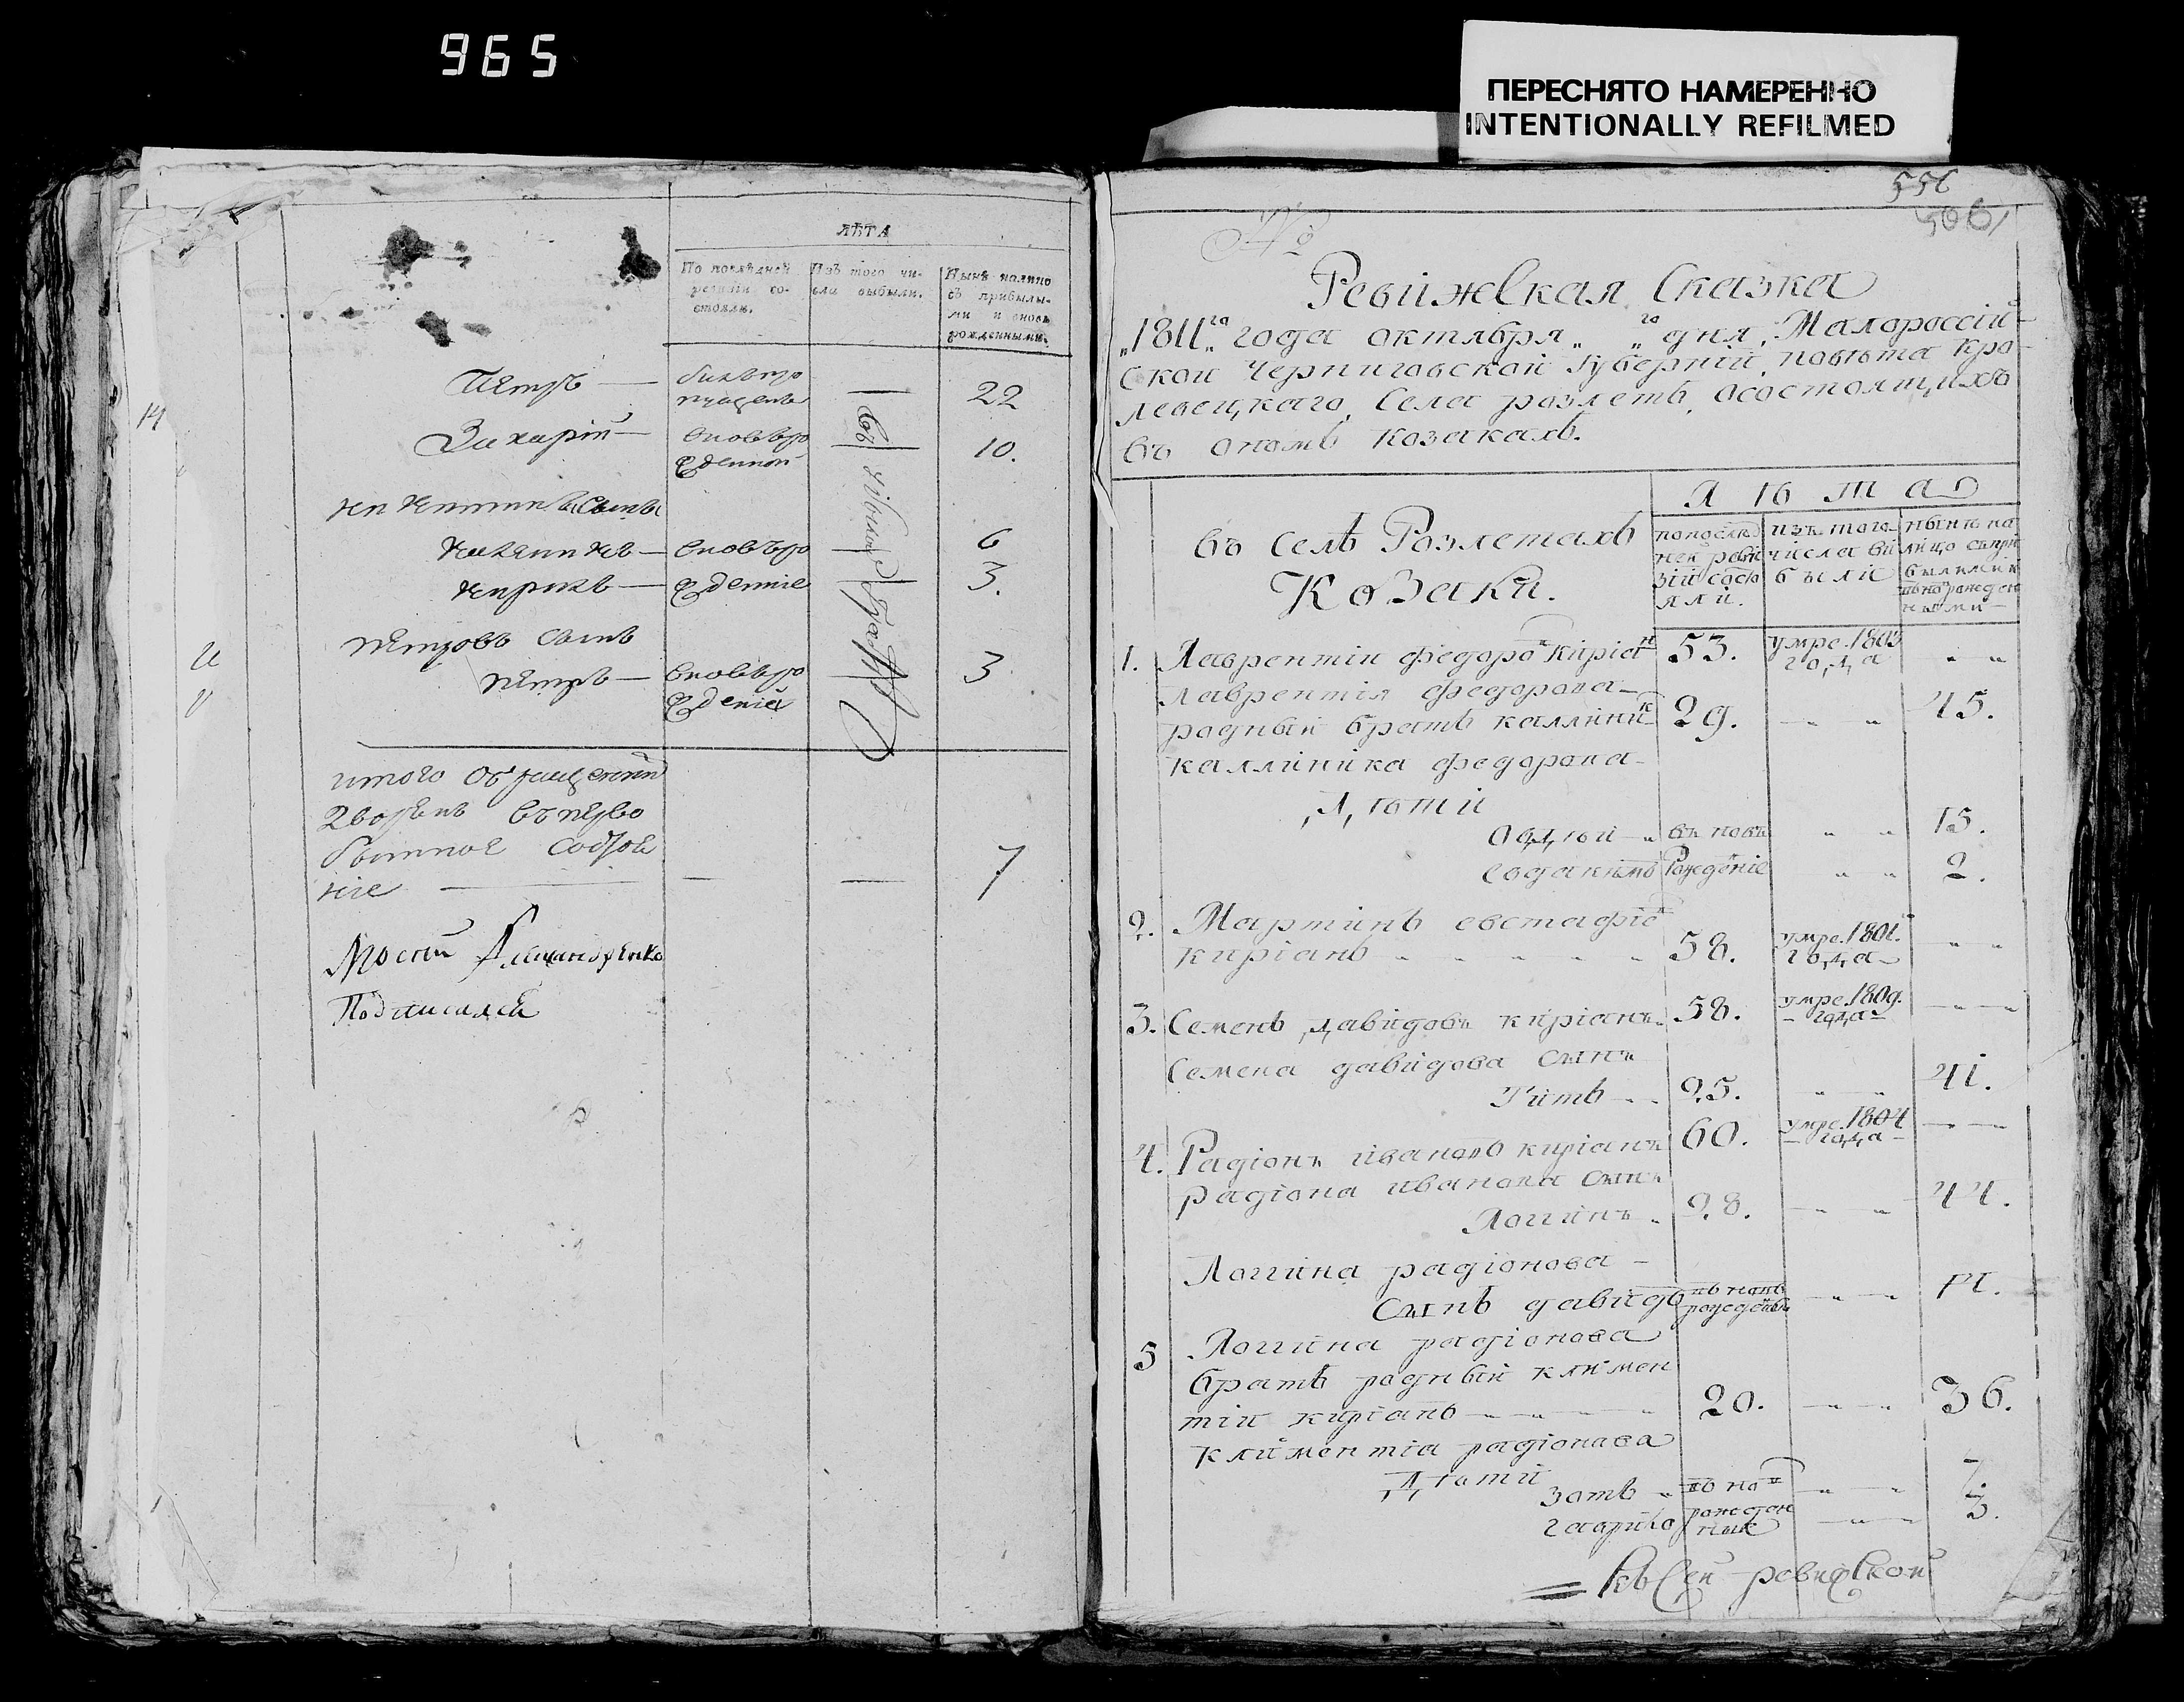 965
ПЕРЕСНЯТО НАМЕРЕННО
INTENTIONALLY REFILMED
ЛѢТА
По послѣдней ревизіи состояли.
Изъ того числа выбыли.
Нынѣ налицо съ прибылыми и вновь рожденными.
Петръ — 22
Захарій — вновьро жденной 10.
сынъ
вновъро 6
Кирикъ — жденніе 3.
Петровъ сынъ
Петръ — вновъро 3
жденій
итого
7
Подписался
556
5061
№
Ревижская Сказка
„1811„го года октября „ „го дня, Малороссій-
ской Черниговской Губерніи, повѣта Кро-
левецкаго, Села розлетъ, осостоящихъ
въ ономъ козакахъ.
въ Селѣ Розлетахъ
Козаки.
Лѣта
попослѣд
ней реви
зіи состо
яли.
изъ того
числа вы
были
нынѣ на
лицо съпри
былими и
вновьрожден
ными
1. Лаврентіи федоро киріан 53. умре.1803 года „ „
Лаврентія федорова
родный братъ каллиник 29. „ „ 45.
каллиника федорова
дѣти
Овдѣй „ въ новъ „ „ 15.
Рожденіе „ „ 2.
2. Мартинъ евстафіе
киріанъ „ „ „ 58. умре.1801. года „ „
3. Семенъ давидовъ киріанъ 58. умре.1809. года „ „
Семена давидова сынъ
Титъ „ 25. „ „ 41.
4. Радіонъ ивановъ киріанъ 60. умре.1804 года „ „
радіона иванова сынъ
Логинъ „ 28. „ „ 44.
Логина радіонова
Сынъ давидъ въ новъ рожденъ „ „
5 Логина радіонова
братъ родный климен
тіи киріанъ „ „ „ 20. „ „ 36.
климентіа радіонова
Дѣти
зотъ „ въ нов „ „ 7.
гаврило рожден ные „ „ 3.
Къ Сей ревижской